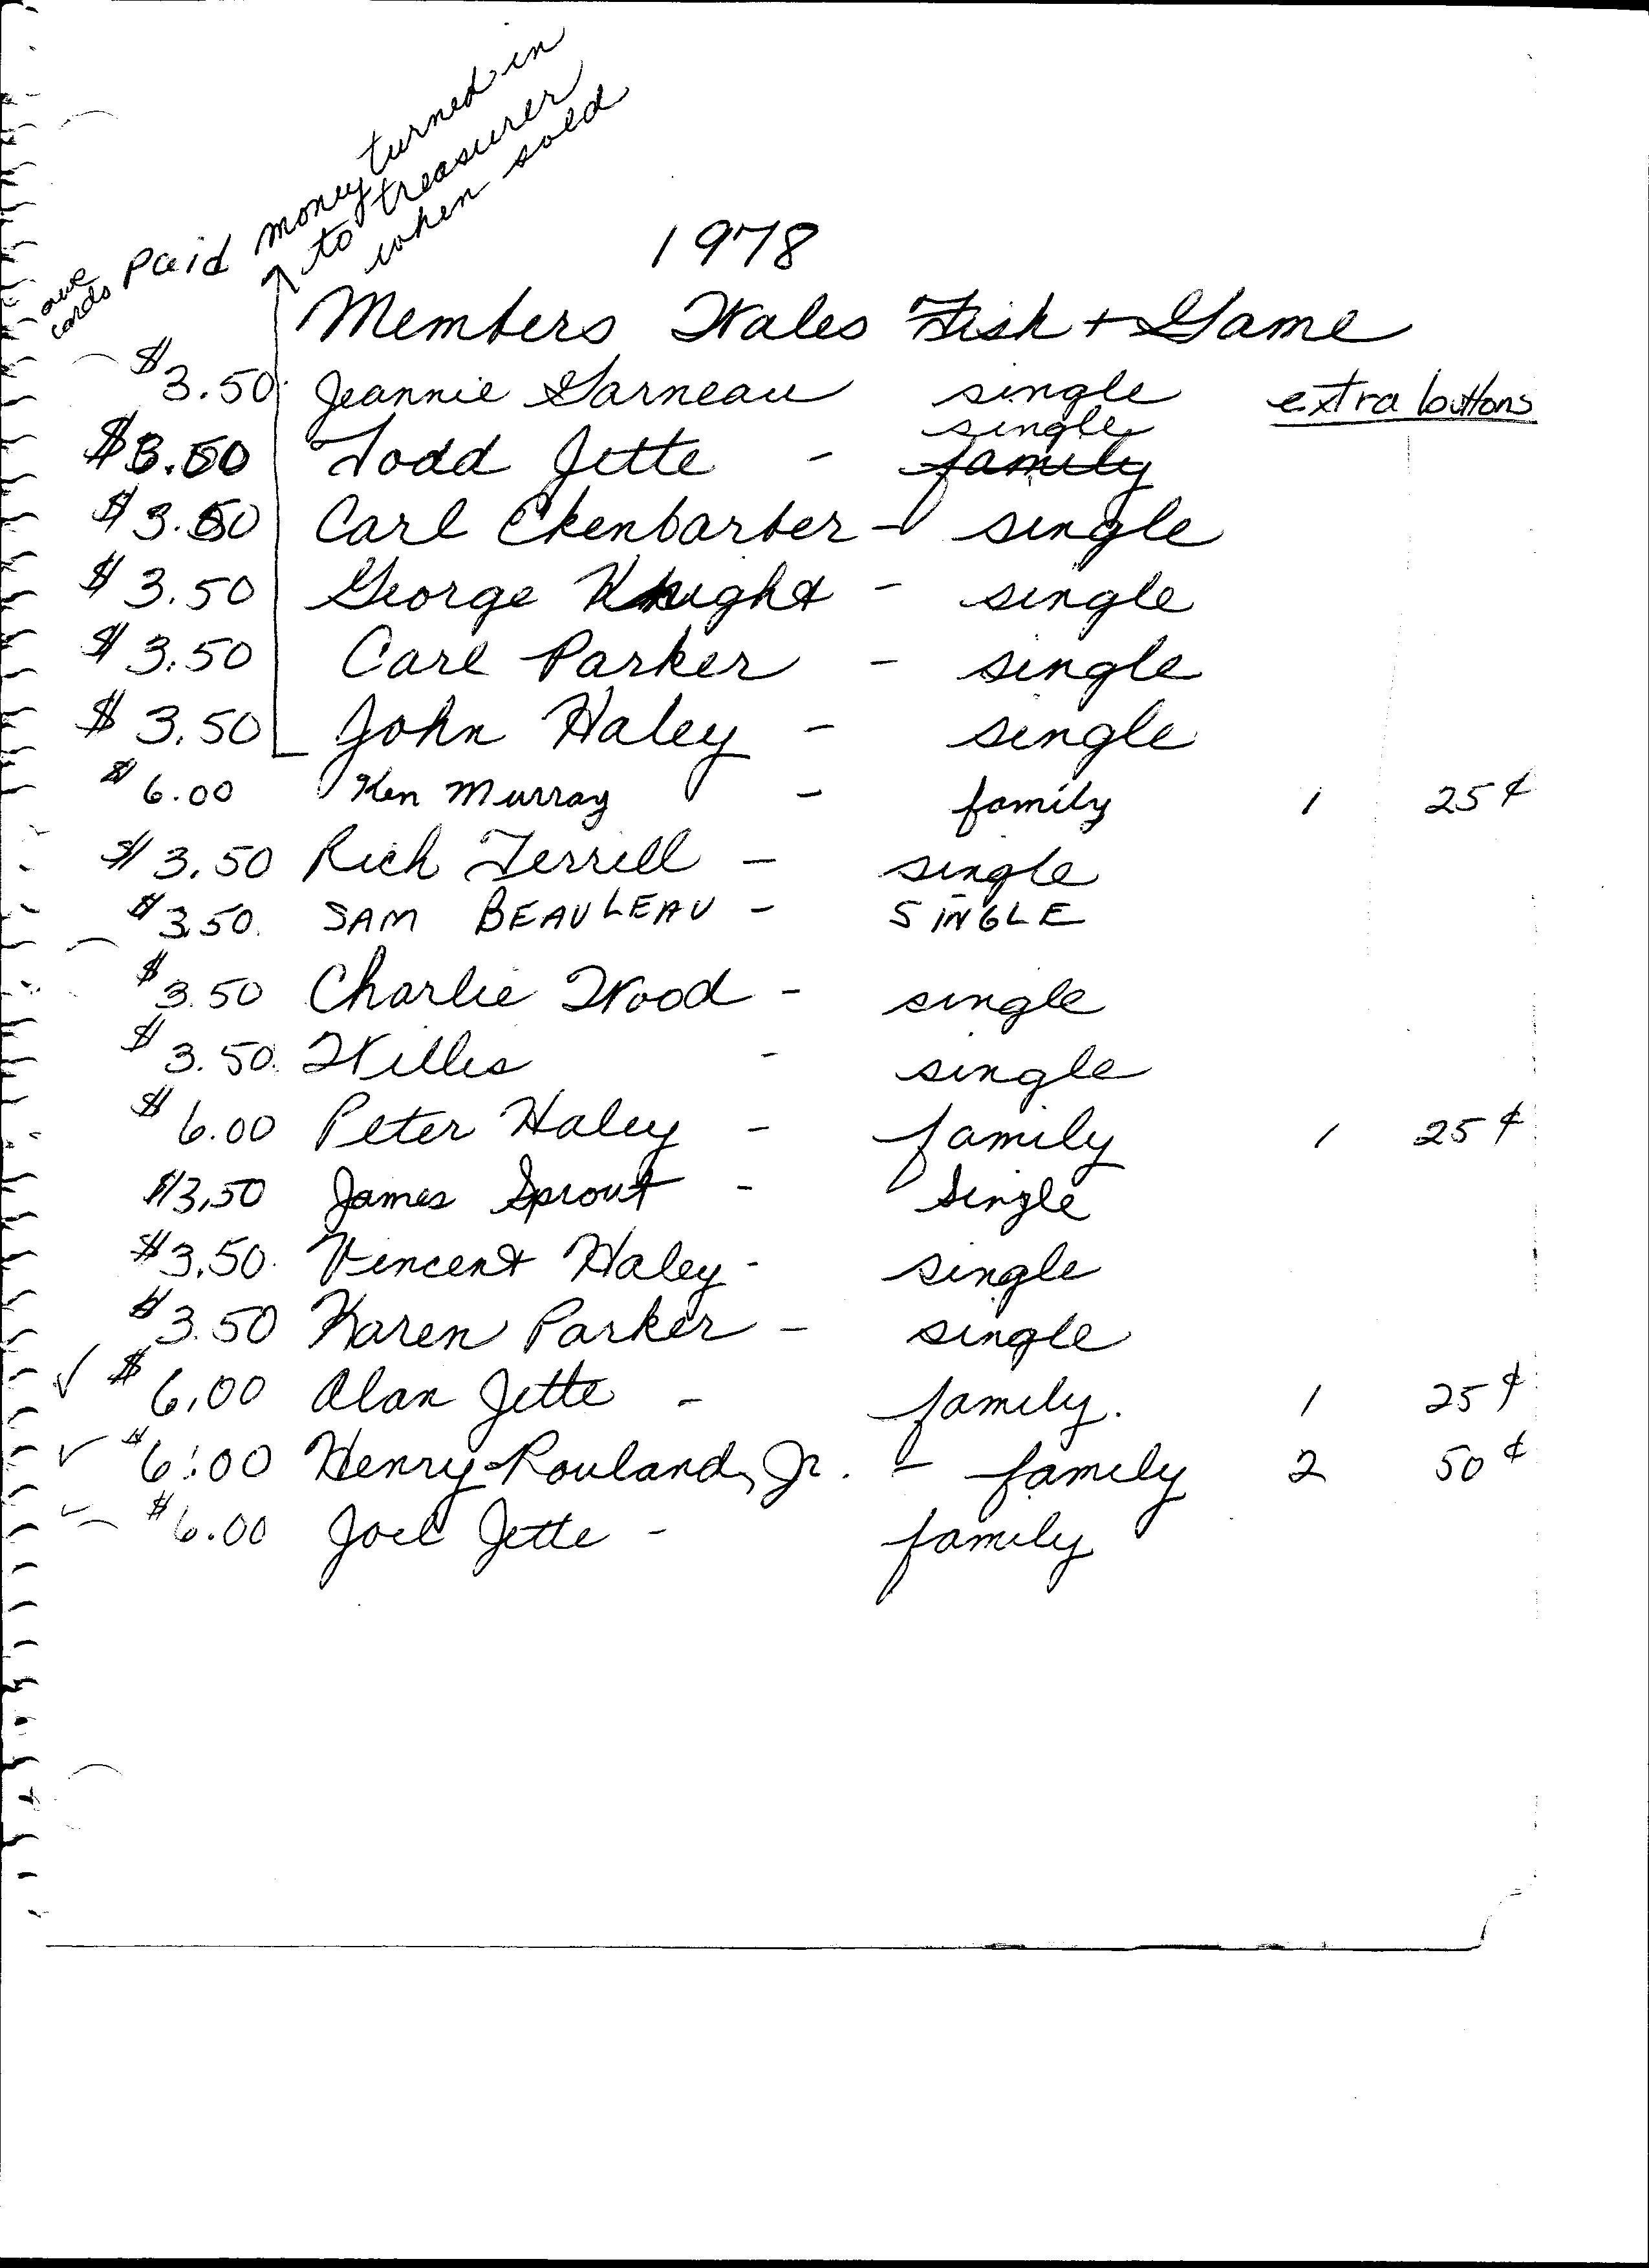 money turned in
to treasurer
when sold
owe
cards
Paid
1978
Members Wales Fish + Game
$3.50 Jeannie Garneau single extra buttons
single
$3.50 Todd Jette - family
$3.50 Carl Ekenbarber - single
$3.50 George Knight - single
$3.50 Carl Parker - single
$3.50 John Haley - single
$6.00 Ken Murray - family 1 25¢
$3.50 Rich Terrell - single
$3.50. SAM BEAULEAU - SINGLE
$3.50 Charlie Wood - single
$3.50. Willis - single
$6.00 Peter Haley - family 1 25¢
$3.50 James Sprout - Single
$3.50. Vincent Haley - single
$3.50 Karen Parker - single
✓ $6.00 Alan Jette - family. 1 25¢
✓ $6.00 Henry Rouland, Jr. - family 2 50¢
✓ $6.00 Joel Jette - family